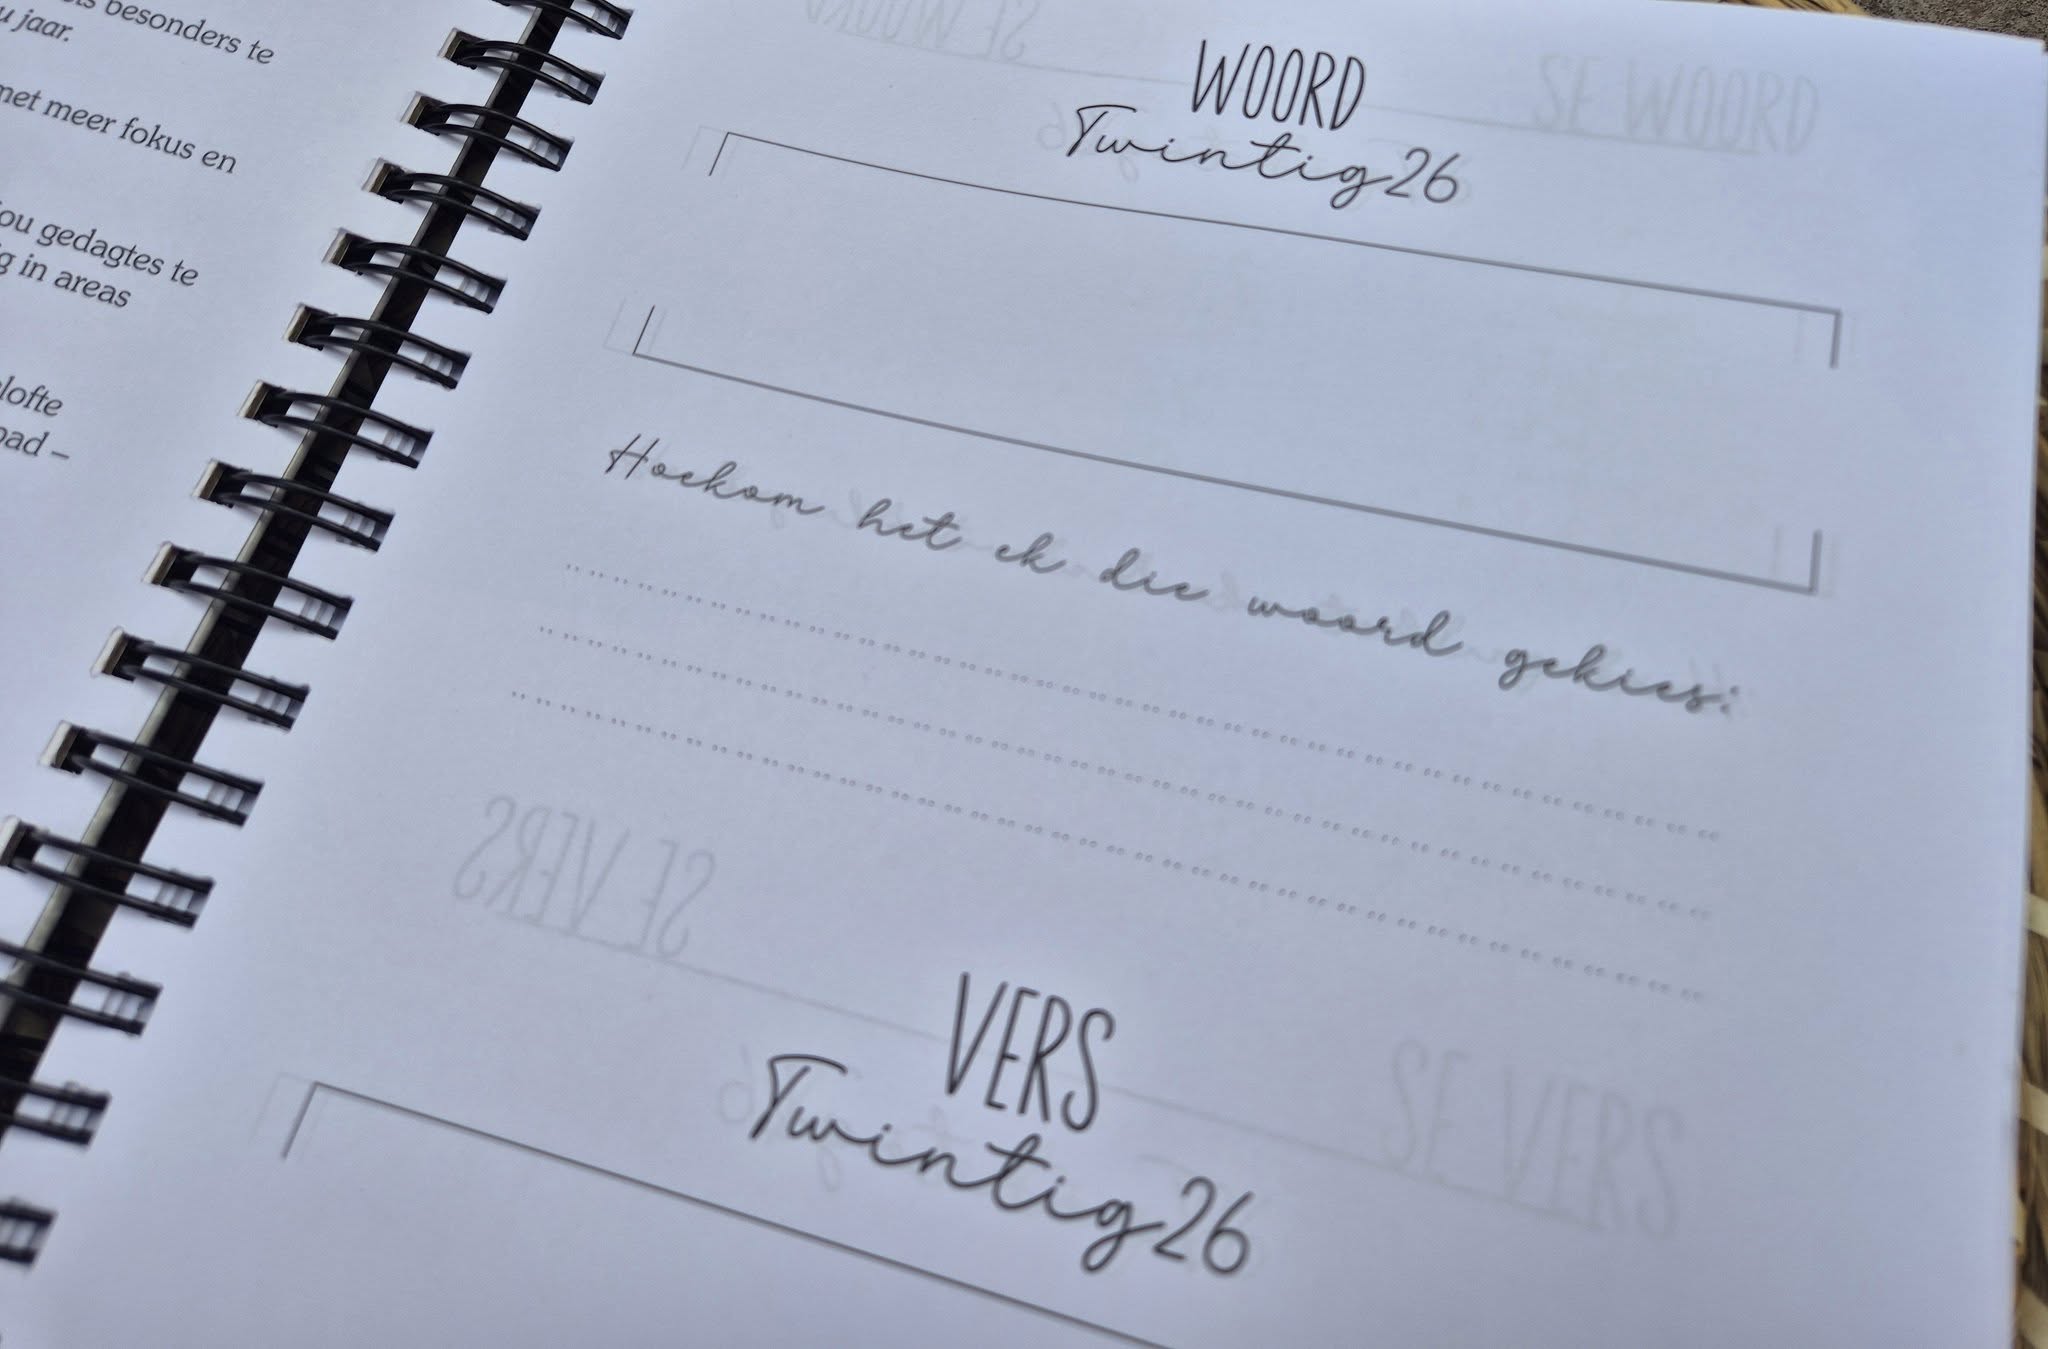 besonders te
jaar.
met meer fokus en
gedagtes te
in areas
WOORD
SE WOORD
Twintig26
Hoekom het ek die woord gekies:
SE VERS
VERS
SE VERS
Twintig26